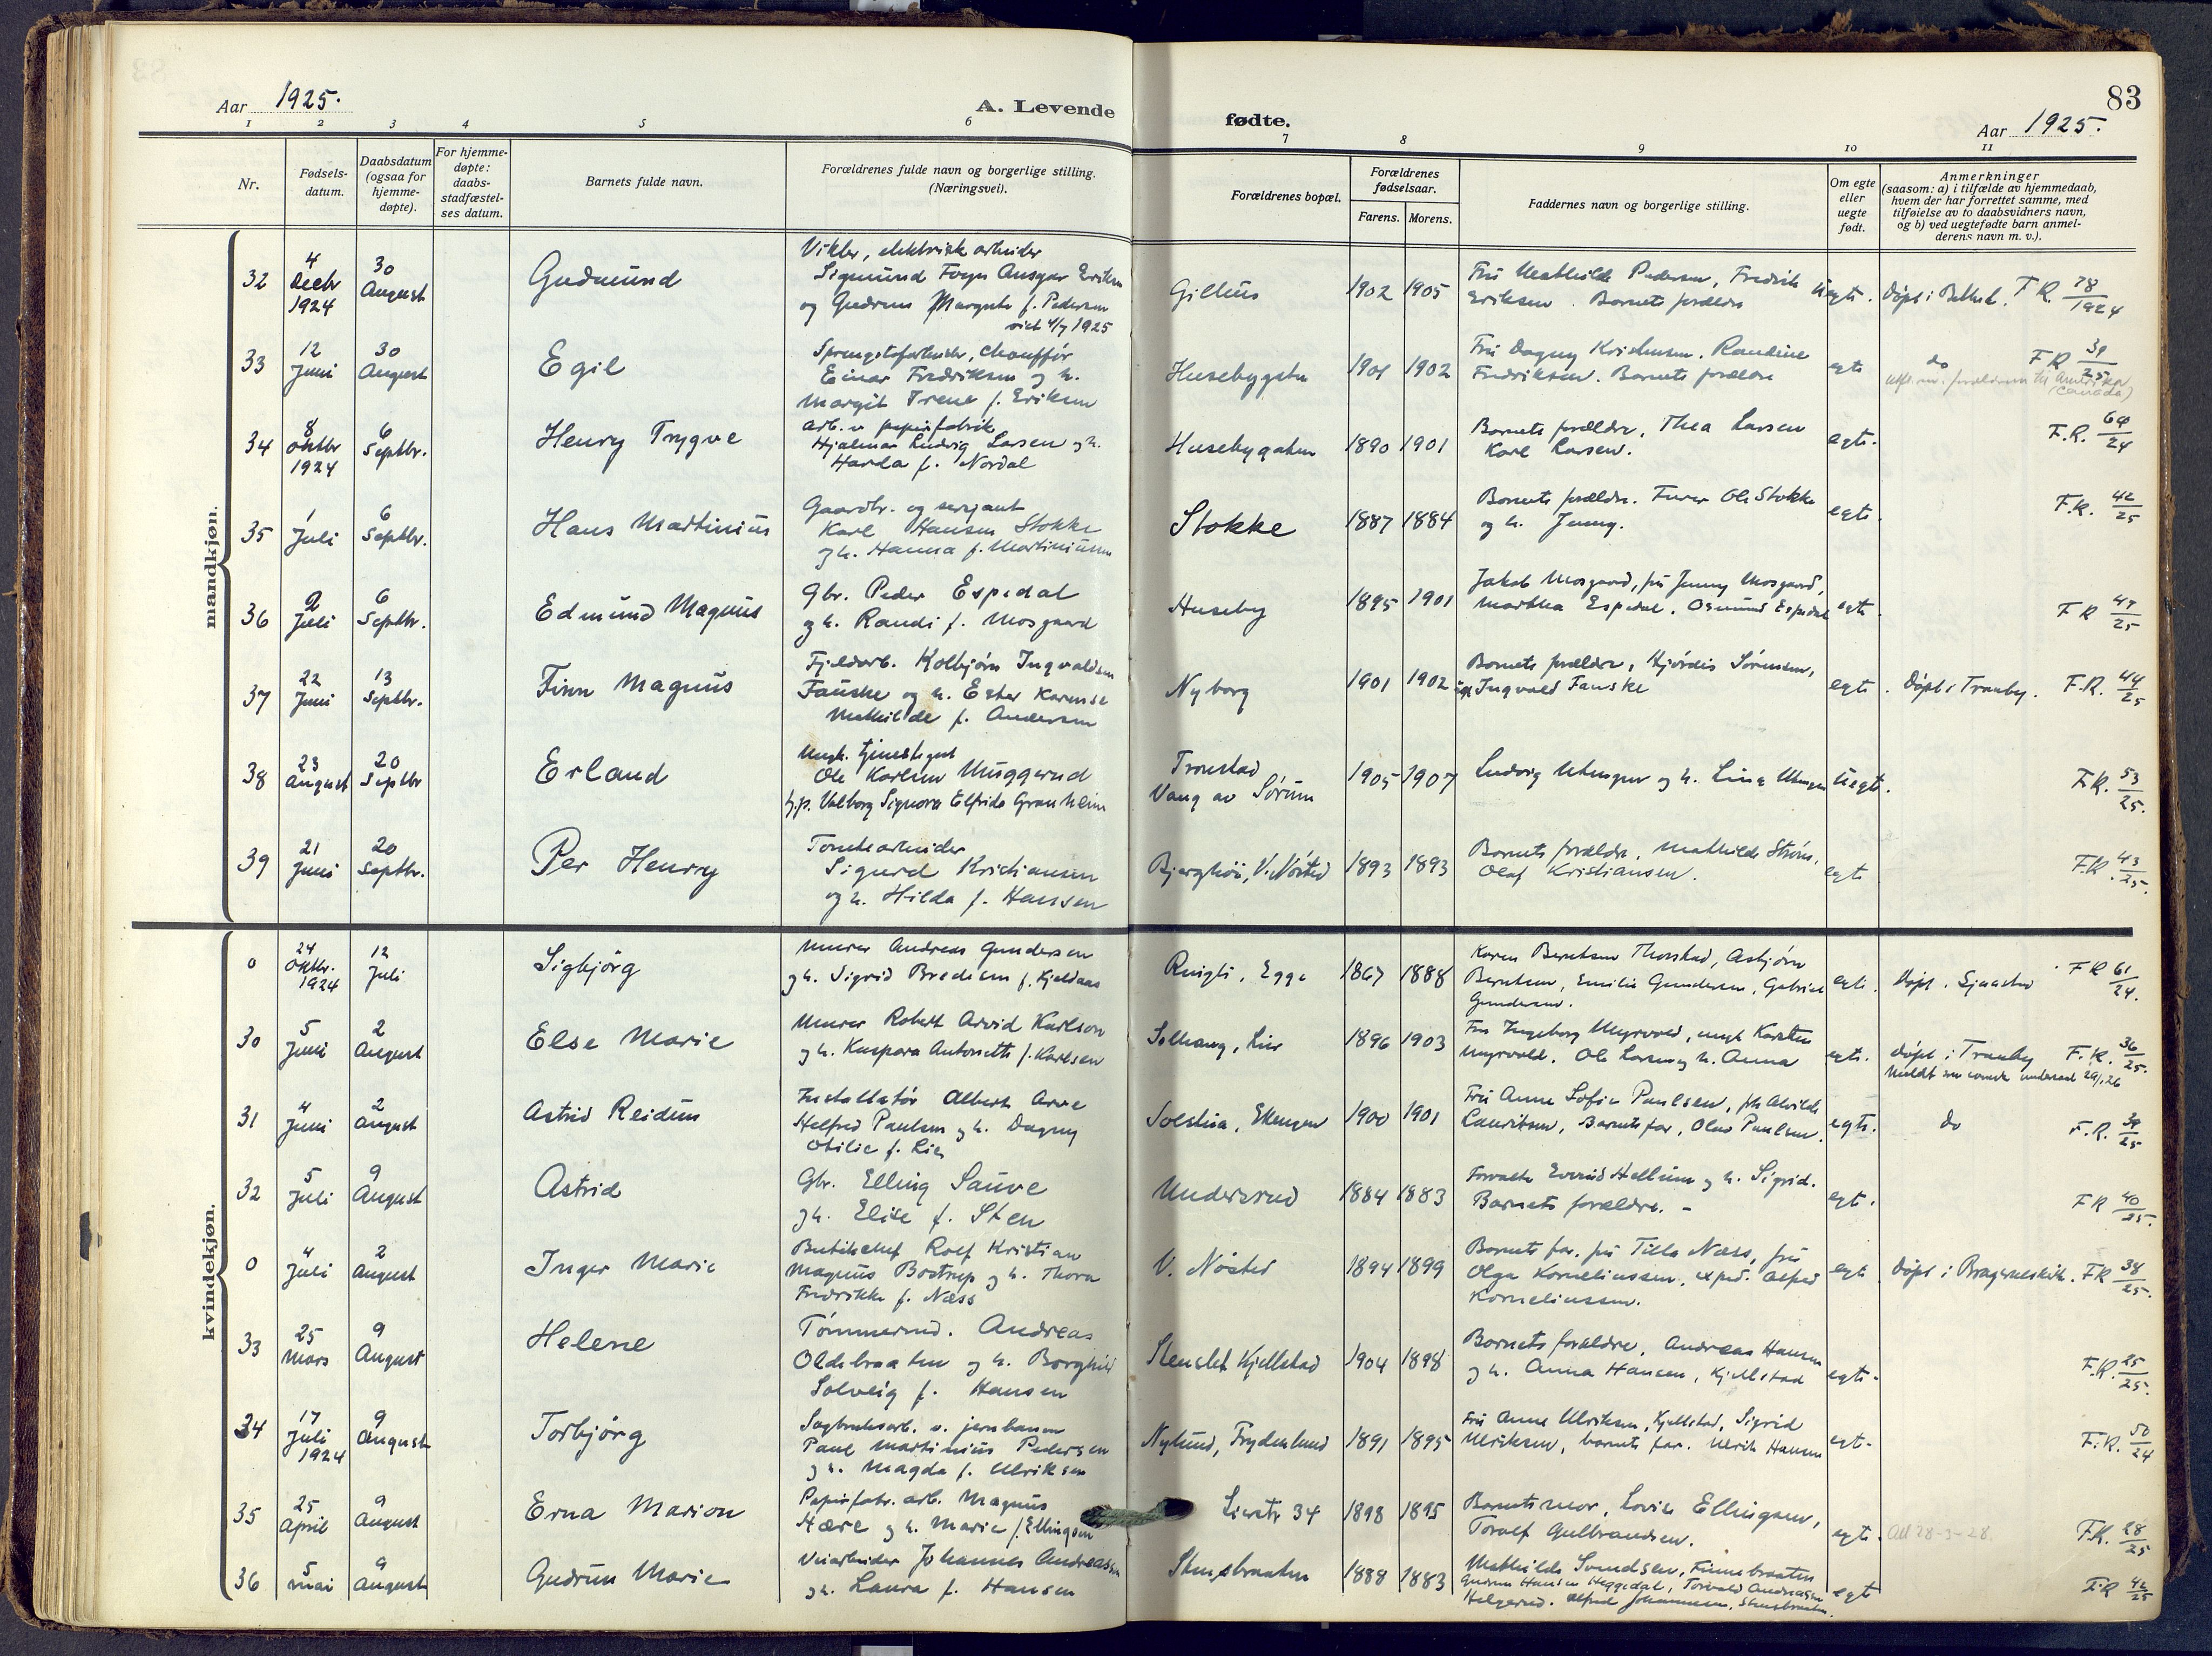 83
Aar 1925.
A. Levende fødte.
Aar 1925.
1 2 3 4 5 6 7 8 9 10 11
Nr.
Fødsels-
datum.
Daabsdatum
(ogsaa for
hjemme-
døpte).
For hjemme-
døpte:
daabs-
stadfæstel-
ses datum.
Barnets fulde navn.
Forældrenes fulde navn og borgerlige stilling.
(Næringsvei).
Forældrenes bopæl.
Forældrenes
fødselsaar.
Farens. Morens.
Faddernes navn og borgerlige stilling.
Om egte
eller
uegte
født.
Anmerkninger
(saasom: a) i tilfælde av hjemmedaab,
hvem der har forrettet samme, med
tilføielse av to daabsvidners navn,
og b) ved uegtefødte barn anmel-
derens navn m. v.).
mandkjøn.
32
4
Decbr
1924
30
August
Gudmund
Vikler, elektrisk arbeider
Sigmund Foyn Ansgar Eriksen
og Gudrun Margrete f. Pedersen
viet 4/7 1925
Gilhus
1902 1905
Fru Mathilde Pedersen, Fredrik
Eriksen. Barnets forældre
Uegte.
Døpt i Bethel. F.R. 78/1924
33
12
Juni
30
August
Egil
Sprengstofarbeider, chauffør
Einar Fredriksen og h.
Margit Irene f. Eriksen
Husebygaten
1901 1902
Fru Dagny Kristensen. Randine
Fredriksen. Barnets forældre
egte
do F.R. 39/25
34
8
Oktbr
1924
6
Septbr.
Henry Trygve
Arb. v papirfabrik
Hjalmar Ludvig Larsen og h.
Harda f. Nordal
Husebygaten
1890 1901
Barnets forældre, Thea Larsen
Karl Larsen.
egte.
F.R. 64/24
35
1
Juli
6
Septbr.
Hans Martinius
Gaardbr. og serjant
Karl Hansen Stokke
og h. Hanna f. Martiniusen
Stokke
1887 1884
Barnets forældre. Furer Ole Stokke
og h. Jenny.
egte.
F.R. 42/25
36
2
Juli
6
Septbr.
Edmund Magnus
Gbr. Peder Espedal
og h. Randi f. Mosgaard
Huseby
1895 1901
Jakob Mosgaard, fru Jenny Mosgaard,
Martha Espedal, Osmund Espedal
egte.
F R 47/25
37
22
Juni
13
Septbr.
Finn Magnus
Fjeldarb. Kolbjørn Ingvaldsen
Fauske og h. Ester Karense
Mathilde f. Andersen
Nyborg
1901 1902
Barnets forældre, Hjørdis Sørensen,
Ingvald Fauske
egte.
Døpt i Tranby. F.R. 44/25
38
23
August
20
Septbr
Erland
Ungk. tjenestegut
Ole Karlsen Muggerud
og p. Valborg Signora Elfrida Granheim
Tronstad
Vang av Sørum
1905 1907
Ludvig Utengen og h. Lina Utengen
Uegte.
F.R. 53/25.
39
21
Juni
20
Septbr.
Per Henry
Tomtearbeider
Sigurd Kristiansen
og h. Hilda f. Hanssen
Bjerghøi, V. Nøsted
1893 1893
Barnets forældre, Mathilde Strøm,
Olaf Kristiansen.
egte
F.R. 43/25.
kvindekjøn.
0
24
Oktbr.
1924
12
Juli
Sigbjørg
Murer Andreas Gundersen
og h. Sigrid Bredesen f. Kjeldaas
Egge
1867 1888
Karen Berntsen Thorstad, Asbjørn
Berntsen, Emilie Gundersen, Gabriel
Gundersen.
egte.
Døpt. Sjaastad F R 61/24.
30
5
Juni
2
August
Else Marie
Murer Robert Arvid Karlson
og h. Kaspara Antonette f. Karlsen
Solhaug, Lier
1896 1903
Fru Ingeborg Myrvold, ungk Karsten
Myrvold. Ole Larsen og h. Anna
egte.
døpt i Tranby F.R. 36/25.
Meldt som svensk undersaat 29/1 26
31
4
Juni
2
August
Astrid Reidun
Installatør Albert Arve
Helfred Paulsen og h. Dagny
Otilie f. Lier
Solstua, Ekengen
1900 1901
Fru Anne Sofie Paulsen, frk Alvilde
Lauritsen, Barnets far, Olav Paulsen.
egte.
do F.R. 39/25
32
5
Juli
9
August
Astrid
Gbr. Elling Sauve
og h. Elise f. Sten
Undersrud
1884 1883
Forvalter Eivind Hellum og h. Sigrid.
Barnets forældre. -
egte.
F R 40/25.
0
4
Juli
2
August
Inger Marie
Butikchef Rolf Kristian
Magnus Bostrup og h. Thora
Fredrikke f. Næss
V. Nøsted
1894 1899
Barnets far, fru Tilla Næss, fru
Olga Korneliussen, exped. Alfred
Korneliussen.
egte
Døpt i Bragerneskirk. F R 34/25.
33
25
Mars
9
August
Helene
Tømmermd. Andreas
Oldebraaten og h. Borghild
Solveig f. Hansen
Stenslet Kjellstad
1904 1898
Barnets forældre, Andreas Hansen
og h. Anna Hansen, Kjellstad
egte.
F.R. 25/25.
34
17
Juli
1924
9
August
Torbjørg
Sagbruksarb. v. jernbanen
Paul Martinius Pedersen
og h. Magda f. Ulriksen
Nylund, Frydenlund
1891 1895
Fru Anne Ulriksen, Kjellstad, Sigrid
Ulriksen, barnets far. Ulrik Hansen
egte.
F.R. 50/24
35
25
April
9
August
Erna Marion
Papirfabr. arb. Magnus
Hære og h. Marie f. Ellingsen
Lierstr. 34
1898 1895
Barnets mor, Lovise Ellingsen,
Toralf Gulbrandsen.
egte.
Att 28-3-28.
F.R. 28/25
36
5
mai
9
August
Gudrun Marie
Veiarbeider Johannes Andreassen
og h. Laura f. Hansen
Stensbraaten
1888 1883
Mathilde Svendsen, Finnebraaten
Gudrun Hansen Heggedal, Torvald Andreassen
Helgerud. Alfred Johannessen, Stensbraaten.
egte
F.R 42/25